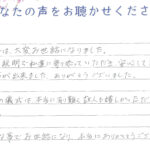 なたの声をお聴かせくださ
は大変お世話になりました。
説明で私達に寄り添っていただき 安心して
が出来ました ありがとうございました。
の儀式は 本当に 感動し 故人も嬉しかった
事でお世話になり 本当にありがとうござ